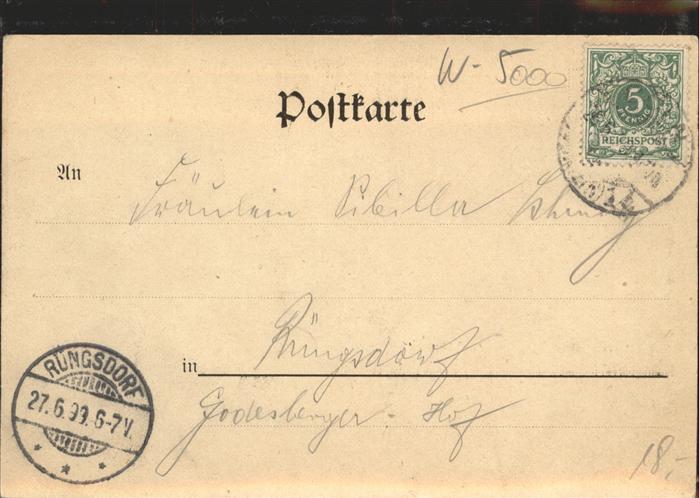 W-5000
Postkarte
5
PFENNIG
REICHSPOST
An
Fräulein Sibilla
in Rüngsdorf
Godesberger-Hof
RÜNGSDORF
27.6.99.6-7V.
18,-